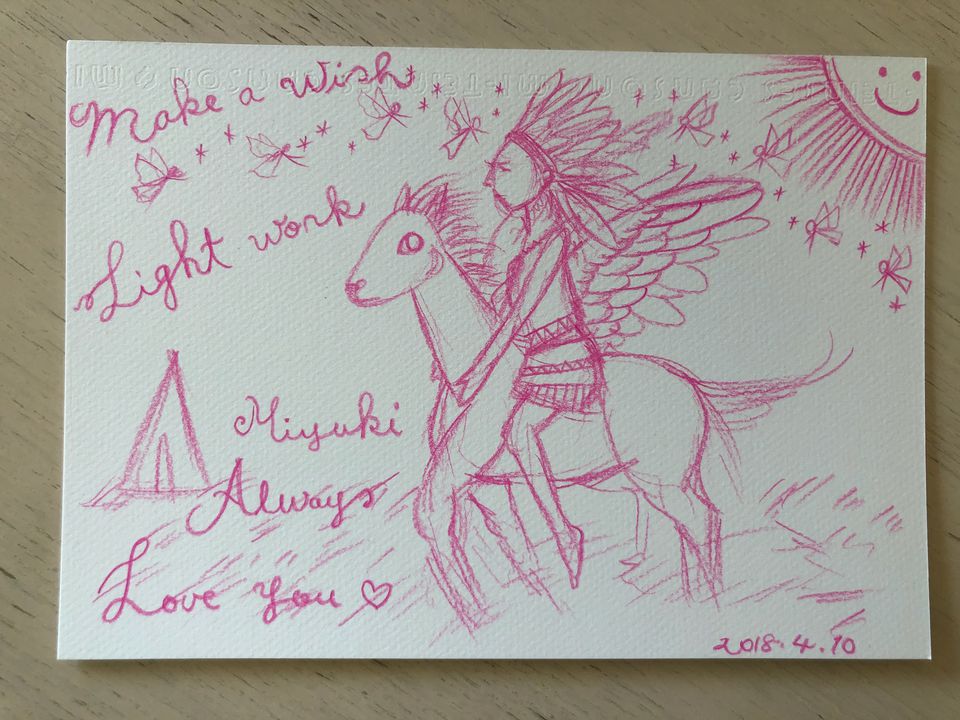 Make a Wish
Light work
Miyuki
Always
Love you ♡
2018.4.10